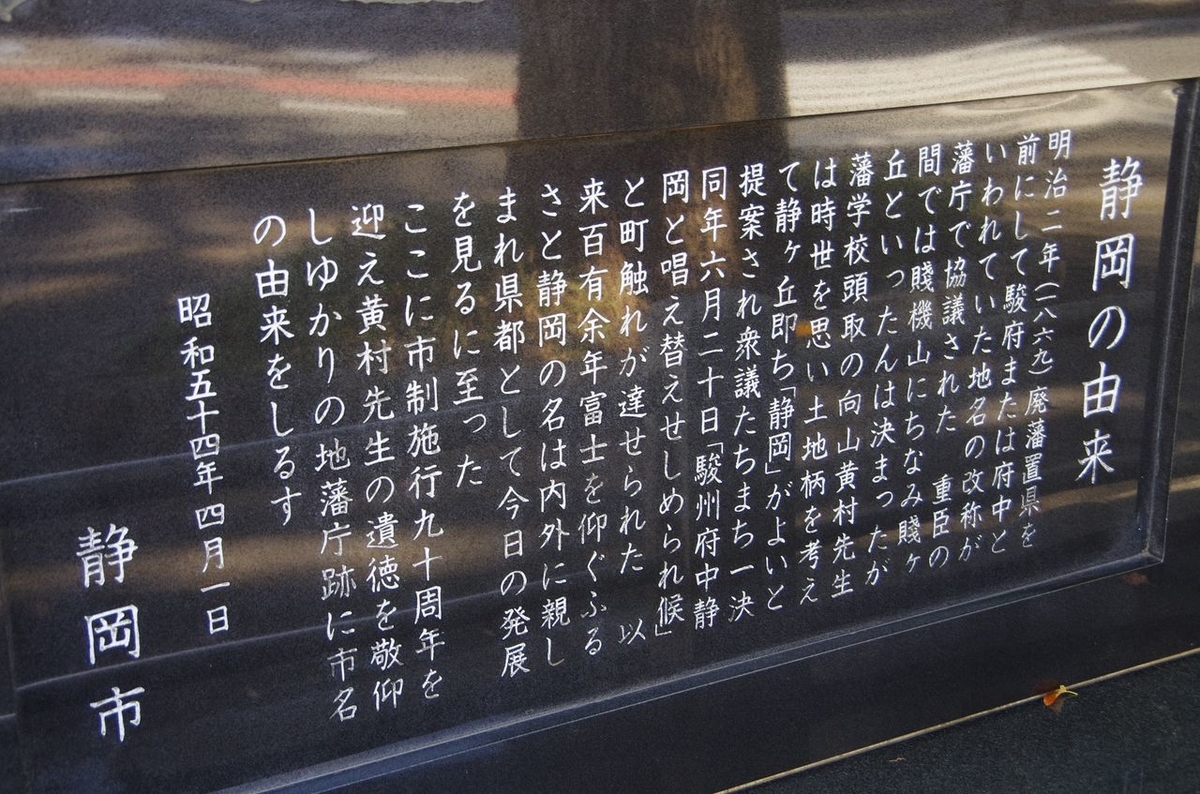 静岡の由来
明治二年（一八六九）廃藩置県を
前にして駿府または府中と
いわれていた地名の改称が
藩庁で協議された　重臣の
間では賤機山にちなみ賤ヶ
丘といったんは決まったが
藩学校頭取の向山黄村先生
は時世を思い土地柄を考え
て静ヶ丘即ち「静岡」がよいと
提案され衆議たちまち一決
同年六月二十日「駿州府中静
岡と唱え替えせしめられ候」
と町触れが達せられた　以
来百有余年富士を仰ぐふる
さと静岡の名は内外に親し
まれ県都として今日の発展
を見るに至った
ここに市制施行九十周年を
迎え黄村先生の遺徳を敬仰
しゆかりの地藩庁跡に市名
の由来をしるす
昭和五十四年四月一日
静岡市